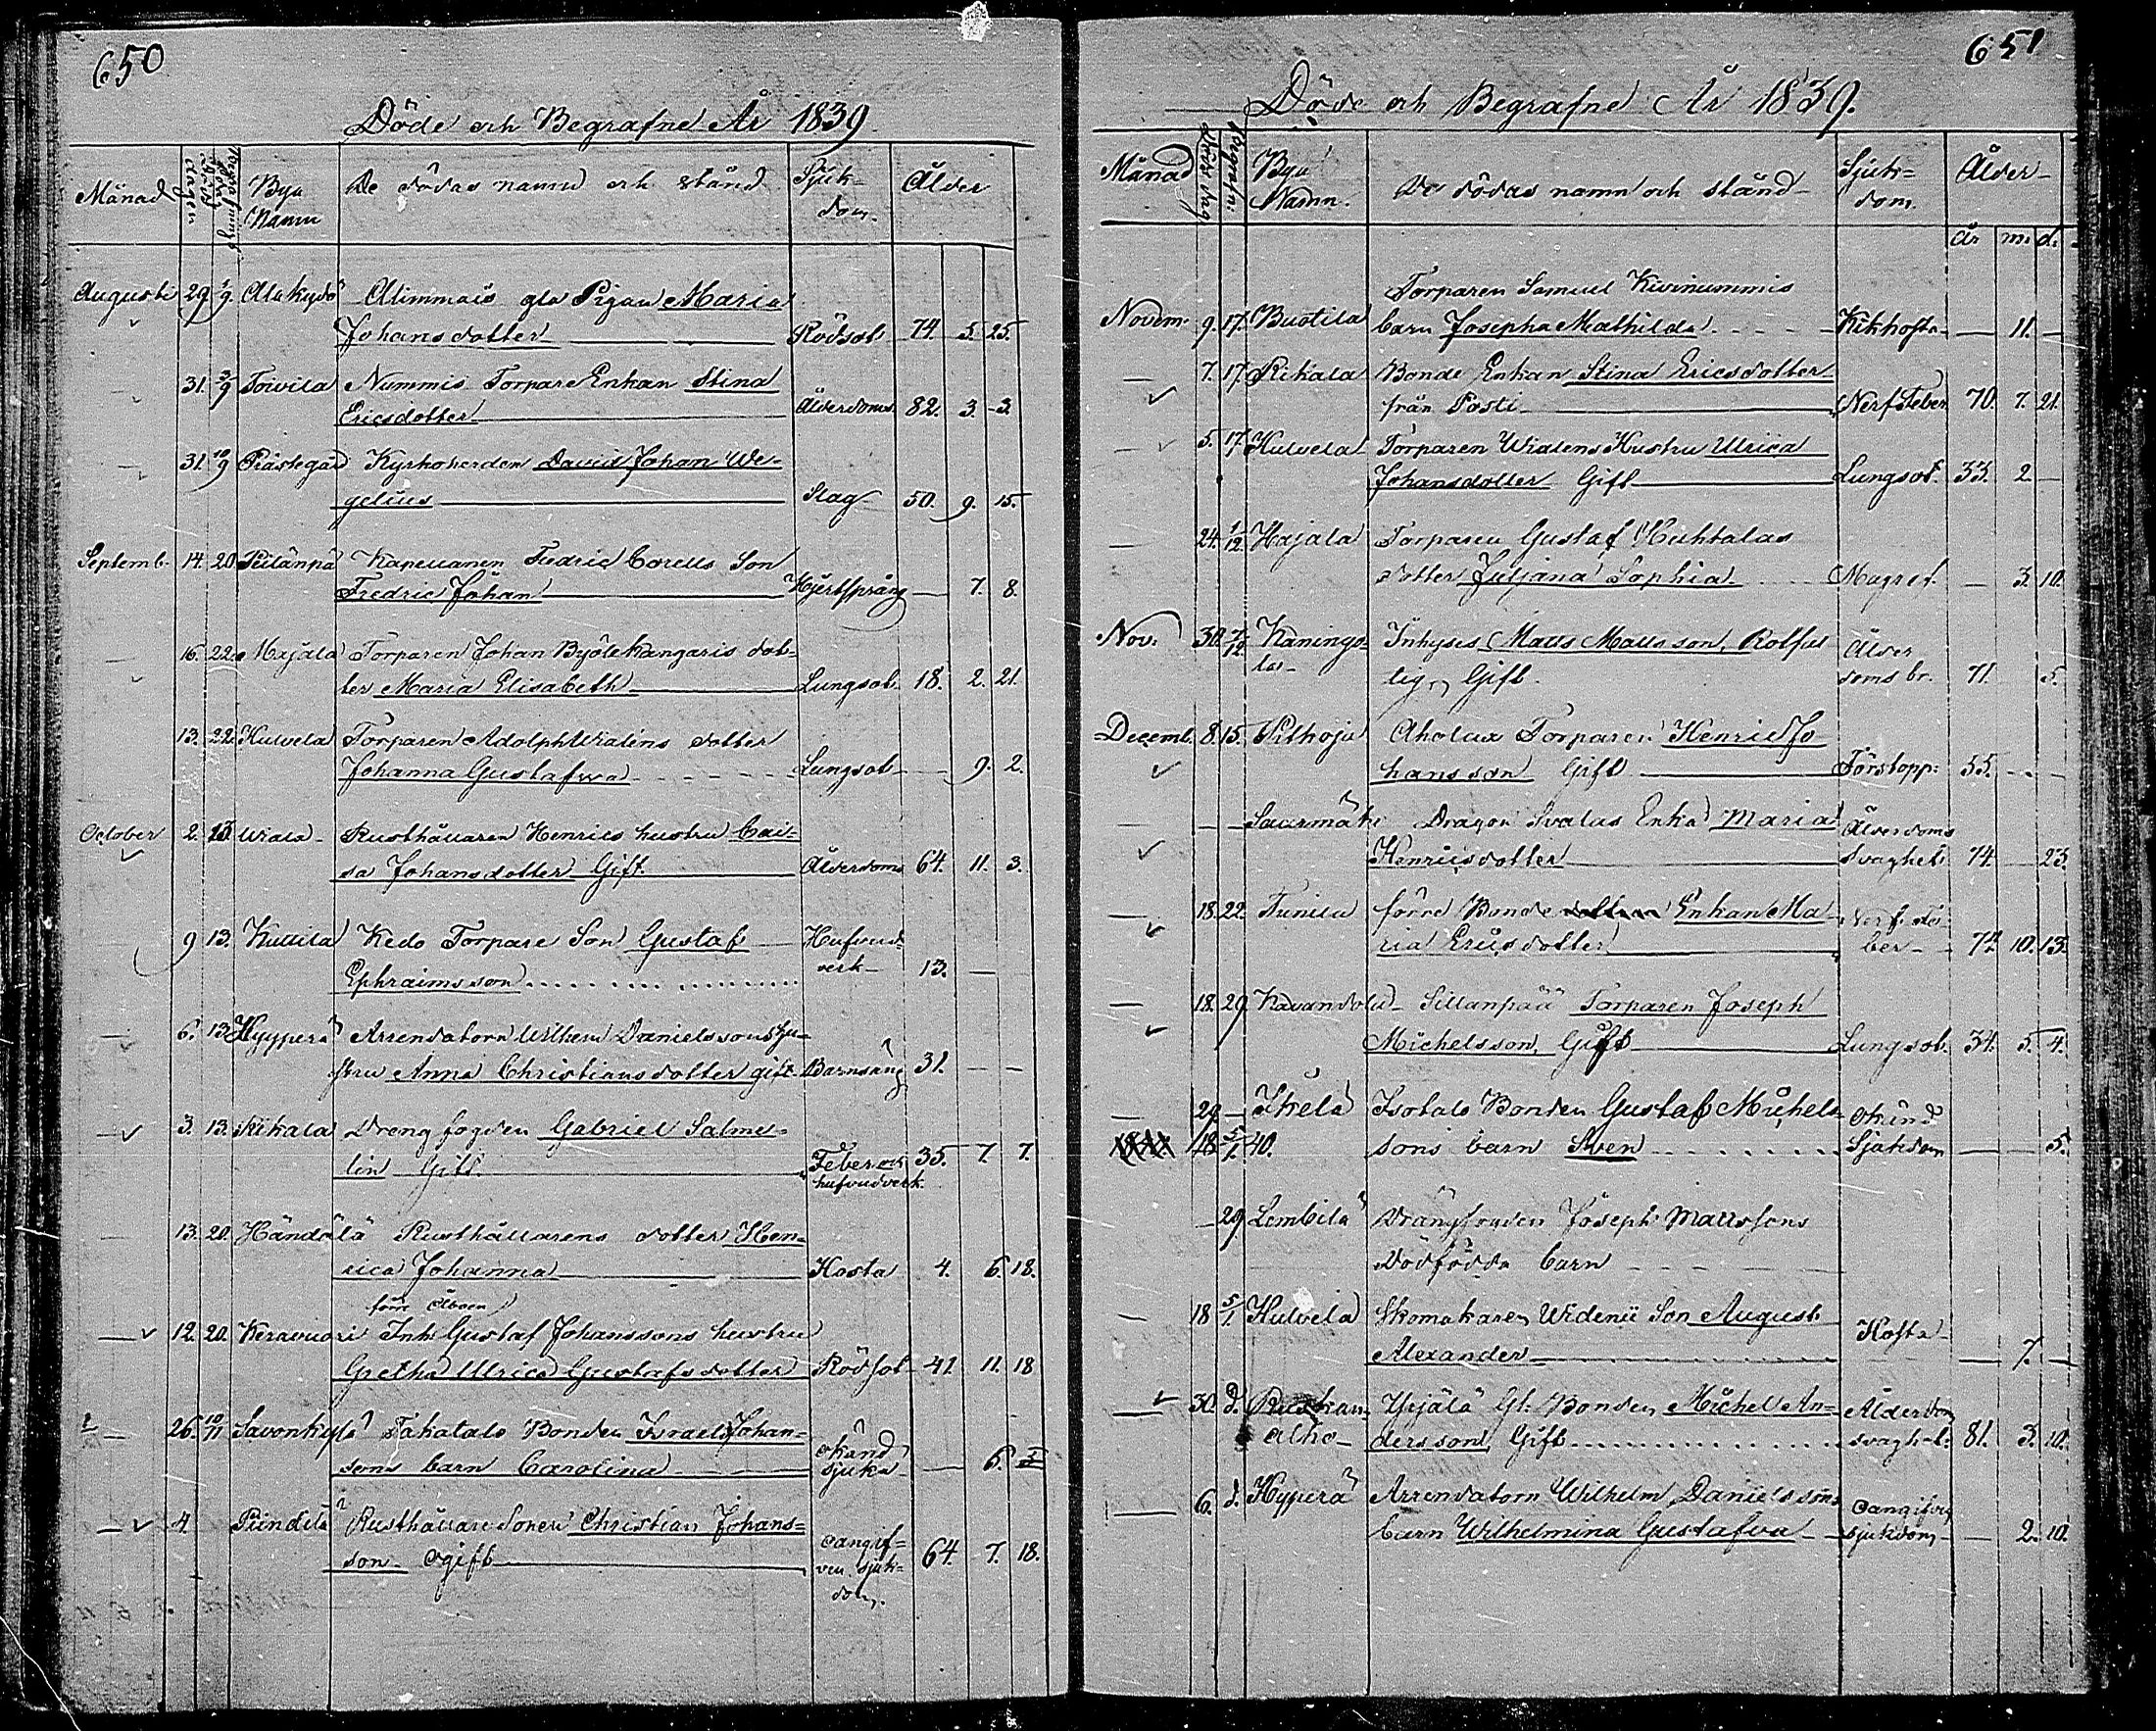 650
Döde och Begrafne År 1839
Månad
Bya Namn
De dödas namn och stånd
Sjuk-
dom.
Ålder
Augusti 29. 1/9. Alakydö Alimmais gla Pigan Maria
Johansdotter Rödsot 74. 5. 25.
31. 3/9 Toivila Nummis Torpare Enkan Stina
Ericsdotter Ålderdoms 82. 3. 3.
31. 10/9 Prästegård Kyrkoherden David Johan We-
gelius Slag 50. 9. 15.
Septemb. 14. 20. Peilänpä Kapellanen Fredric Corells Son
Fredric Johan Hjertsprång 7. 8.
16. 22. Majala Torparen Johan Byölekangaris dot-
ter Maria Elisabeth Lungsot 18. 2. 21.
13. 22. Hulvela Torparen Adolph Wialens dotter
Johanna Gustafwa Lungsot 9. 2.
October 2. Wiala Rusthållaren Henrics hustru Cai-
sa Johansdotter Gift. Ålderdoms 64. 11. 3.
9 13. Kuttila Kedo Torpare Son Gustaf Hufvud-
Ephraimsson verk 13.
6. 13. Hyyperä Arrendatorn Wilhem Danielssons hu-
stru Anna Christiansdotter gift. Barnsäng 31.
3. 13. Rikala Drengfogden Gabriel Salme-
lin Gift Feber och 35. 7. 7.
hufvudverk.
13. 20. Händälä Rusthållarens dotter Hen-
rica Johanna Hosta 4. 6. 18.
förre Åboen
12. 20. Keravuori Inh. Gustaf Johanssons hustru
Gretha Ulrica Gustafsdotter Rödsot 41. 11. 18
26. 10/11 Savonkylä Takatalo Bonden Israel Johan-
sons barn Carolina okänd sjukd. 6. 5
4. Piindilä Rusthållare Sonen Christian Johans-
son ogift oangif-
ven sjuk-
dom. 64. 7. 18.
651
Döde och Begrafne År 1839.
Månad
Dödsdag
Begrafn:
Bya Namn.
De dödas namn och stånd
Sjuk-
dom.
Ålder
År m. d.
Torparen Samuel Kivinummis
Novem. 9. 17. Buotila barn Josepha Mathilda Kikhosta 11.
7. 17. Rikala Bonde Enkan Stina Ericsdotter
från Posti Nerffeber 70. 7. 21.
5. 17. Hulvela Torparen Wialens Hustru Ulrica
Johansdotter Gift Lungsot. 33. 2.
24. 1/12 Hajala Torparen Gustaf Huhtalas
dotter Juljana Sophia Magref. 3. 10.
Nov. 30. 7/12 Kanings- Inhyses Matts Mattsson, Rotfat-
tig, Gift. Ålder
doms br. 71. 5.
Decemb. 8. 15. Pithoja Aholax Torparen Henric Jo-
hansson Gift Förstopp: 55.
Saarmäki Dragon Svalas Enka Maria Ålderdoms
Henricsdotter svaghet 74 23.
18. 22. Tunila förre Bonde Enkan Ma- Nerf fe-
ria Ericsdotter ber 74 10. 13.
18. 29. Kavandolu Sillanpää Torparen Joseph
Michelsson, Gift Lungsot. 34. 5. 4.
29 Ihela Isotalo Bonden Gustaf Michels- okänd
18 5/1 40. sons barn Sven Sjukdom 5.
29. Lembilä Drängfogden Joseph Mattssons
Dödfödda barn
18 5/1. Hulvela Skomakaren Widenii Son August
Alexander Hosta 7.
30. d. Ruskan- Yrjälä Gl. Bonden Michel An- Ålderdom
alho dersson Gift svaghet. 81. 3. 10.
6. d. Hyyperä Arrendatorn Wilhelm Danielssons oangifven
barn Wilhelmina Gustafva sjukdom 2. 10.